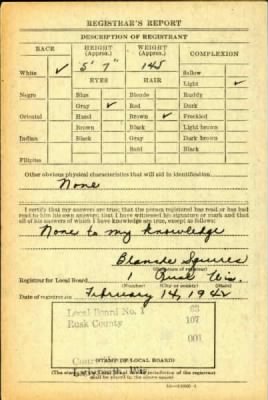 REGISTRAR'S REPORT
DESCRIPTION OF REGISTRANT
RACE HEIGHT (Approx.) WEIGHT (Approx.) COMPLEXION
White ✓ 5' 7" 145 Sallow
EYES HAIR Light ✓
Negro Blue Blonde Ruddy
Gray ✓ Red Dark
Oriental Hazel Brown ✓ Freckled
Brown Black Light brown
Indian Black Gray Dark brown
Bald Black
Filipino
Other obvious physical characteristics that will aid in identification
None
I certify that my answers are true; that the person registered has read or has had
read to him his own answers; that I have witnessed his signature or mark and that
all of his answers of which I have knowledge are true, except as follows:
None to my knowledge
Blanche Squires
Registrar for Local Board 1 Rusk Wis.
(Number) (City or county) (State)
Date of registration February 14, 1942
Local Board No. 1 63
Rusk County 107
001
(STAMP OF LOCAL BOARD)